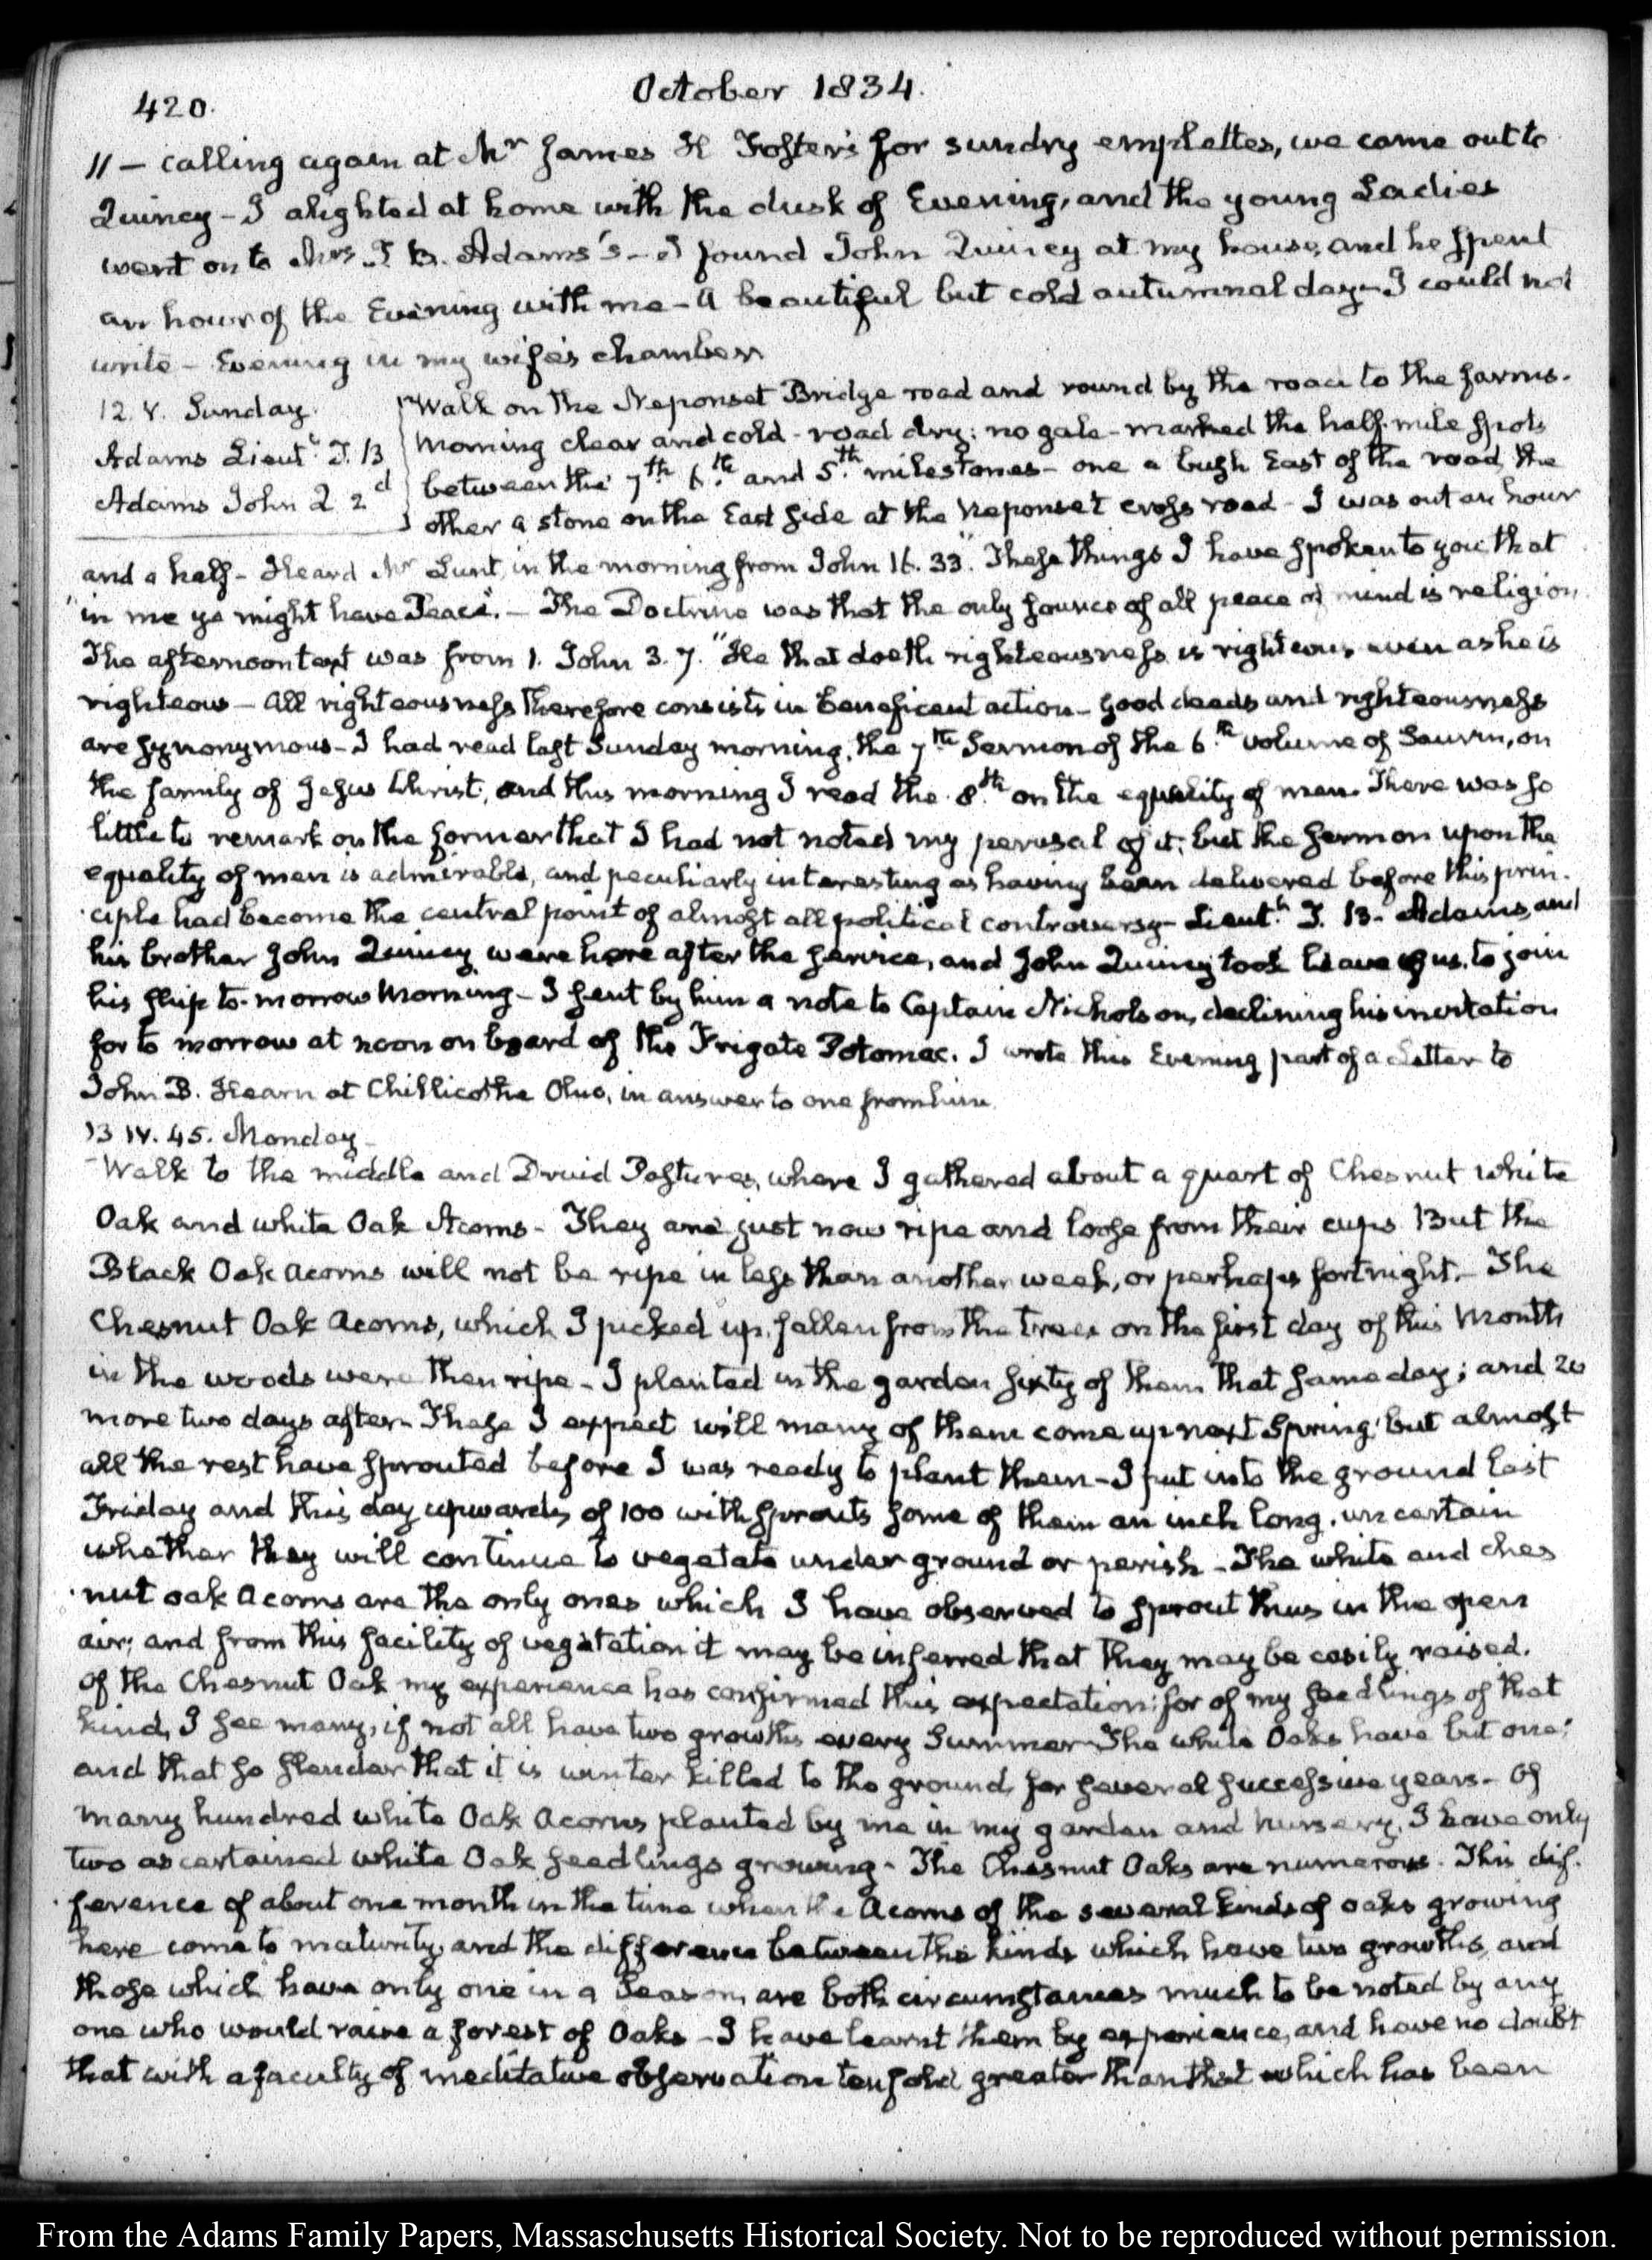 420.
October 1834.
11 - calling again at Mr James H Foster's for sundry emplettes, we came out to
Quincy - I alighted at home with the dusk of Evening, and the young Ladies
went on to Mrs T. B. Adams's - I found John Quincy at my house, and he spent
an hour of the Evening with me - A beautiful but cold autumnal day - I could not
write - Evening in my wife's chamber
12. V. Sunday.
Adams Lieutt T. B
Adams John Q 2d
Walk on the Neponset Bridge road and round by the road to the farms.
Morning clear and cold - road dry: no gale - marked the half-mile spots
between the 7th 6th and 5th milestones - one a bush East of the road, the
other a stone on the East side at the Neponset cross road - I was out an hour
and a half - Heard Mr Lunt, in the morning from John 16. 33. "These things I have spoken to you, that
"in me ye might have Peace". - The Doctrine was that the only source of all peace of mind is religion.
The afternoon text was from 1. John 3. 7. "He that doeth righteousness is righteous even as he is
righteous - All righteousness therefore consists in beneficent action - good deeds and righteousness
are synonymous - I had read last Sunday morning, the 7th Sermon of the 6th volume of Saurin, on
the family of Jesus Christ, and this morning I read the 8th on the equality of men. There was so
little to remark on the former that I had not noted my perusal of it; but the sermon upon the
equality of men is admirable, and peculiarly interesting as having been delivered before this prin-
ciple had become the central point of almost all political controversy - Lieutt T. B. Adams, and
his brother John Quincy were here after the service, and John Quincy took leave of us, to join
his ship to-morrow Morning - I sent by him a note to Captain Nicholson, declining his invitation
for to morrow at noon on board of the Frigate Potomac. I wrote this Evening part of a Letter to
John B. Hearn at Chillicothe Ohio, in answer to one from him.
13 IV. 45. Monday -
Walk to the middle and Druid Pastures, where I gathered about a quart of Chesnut white
Oak and white Oak Acorns - They are just now ripe and loose from their cups But the
Black Oak acorns will not be ripe in less than another week, or perhaps fortnight. - The
Chesnut Oak Acorns, which I picked up, fallen from the trees on the first day of this Month
in the woods were then ripe - I planted in the garden sixty of them that same day; and 20
more two days after - These I expect will many of them come up next Spring; but almost
all the rest have sprouted before I was ready to plant them - I put into the ground last
Friday and this day upwards of 100 with sprouts some of them an inch long, uncertain
whether they will continue to vegetate under ground or perish - The white and ches
nut oak Acorns are the only ones which I have observed to sprout thus in the open
air; and from this facility of vegetation it may be inferred that they may be easily raised.
Of the Chesnut Oak my experience has confirmed this expectation: for of my seedlings of that
kind, I see many, if not all have two growths every Summer - The white Oaks have but one;
and that so slender that it is winter killed to the ground, for several successive years - Of
many hundred white Oak Acorns planted by me in my garden and nursery, I have only
two ascertained white Oak seedlings growing - The Chesnut Oaks are numerous. This dif-
ference of about one month in the time when the Acorns of the several kinds of oaks growing
here come to maturity, and the difference between the kinds which have two growths, and
those which have only one in a Season, are both circumstances much to be noted by any
one who would raise a forest of Oaks - I have learnt them by experience, and have no doubt
that with a faculty of meditative observation tenfold greater than that which has been
From the Adams Family Papers, Massaschusetts Historical Society. Not to be reproduced without permission.